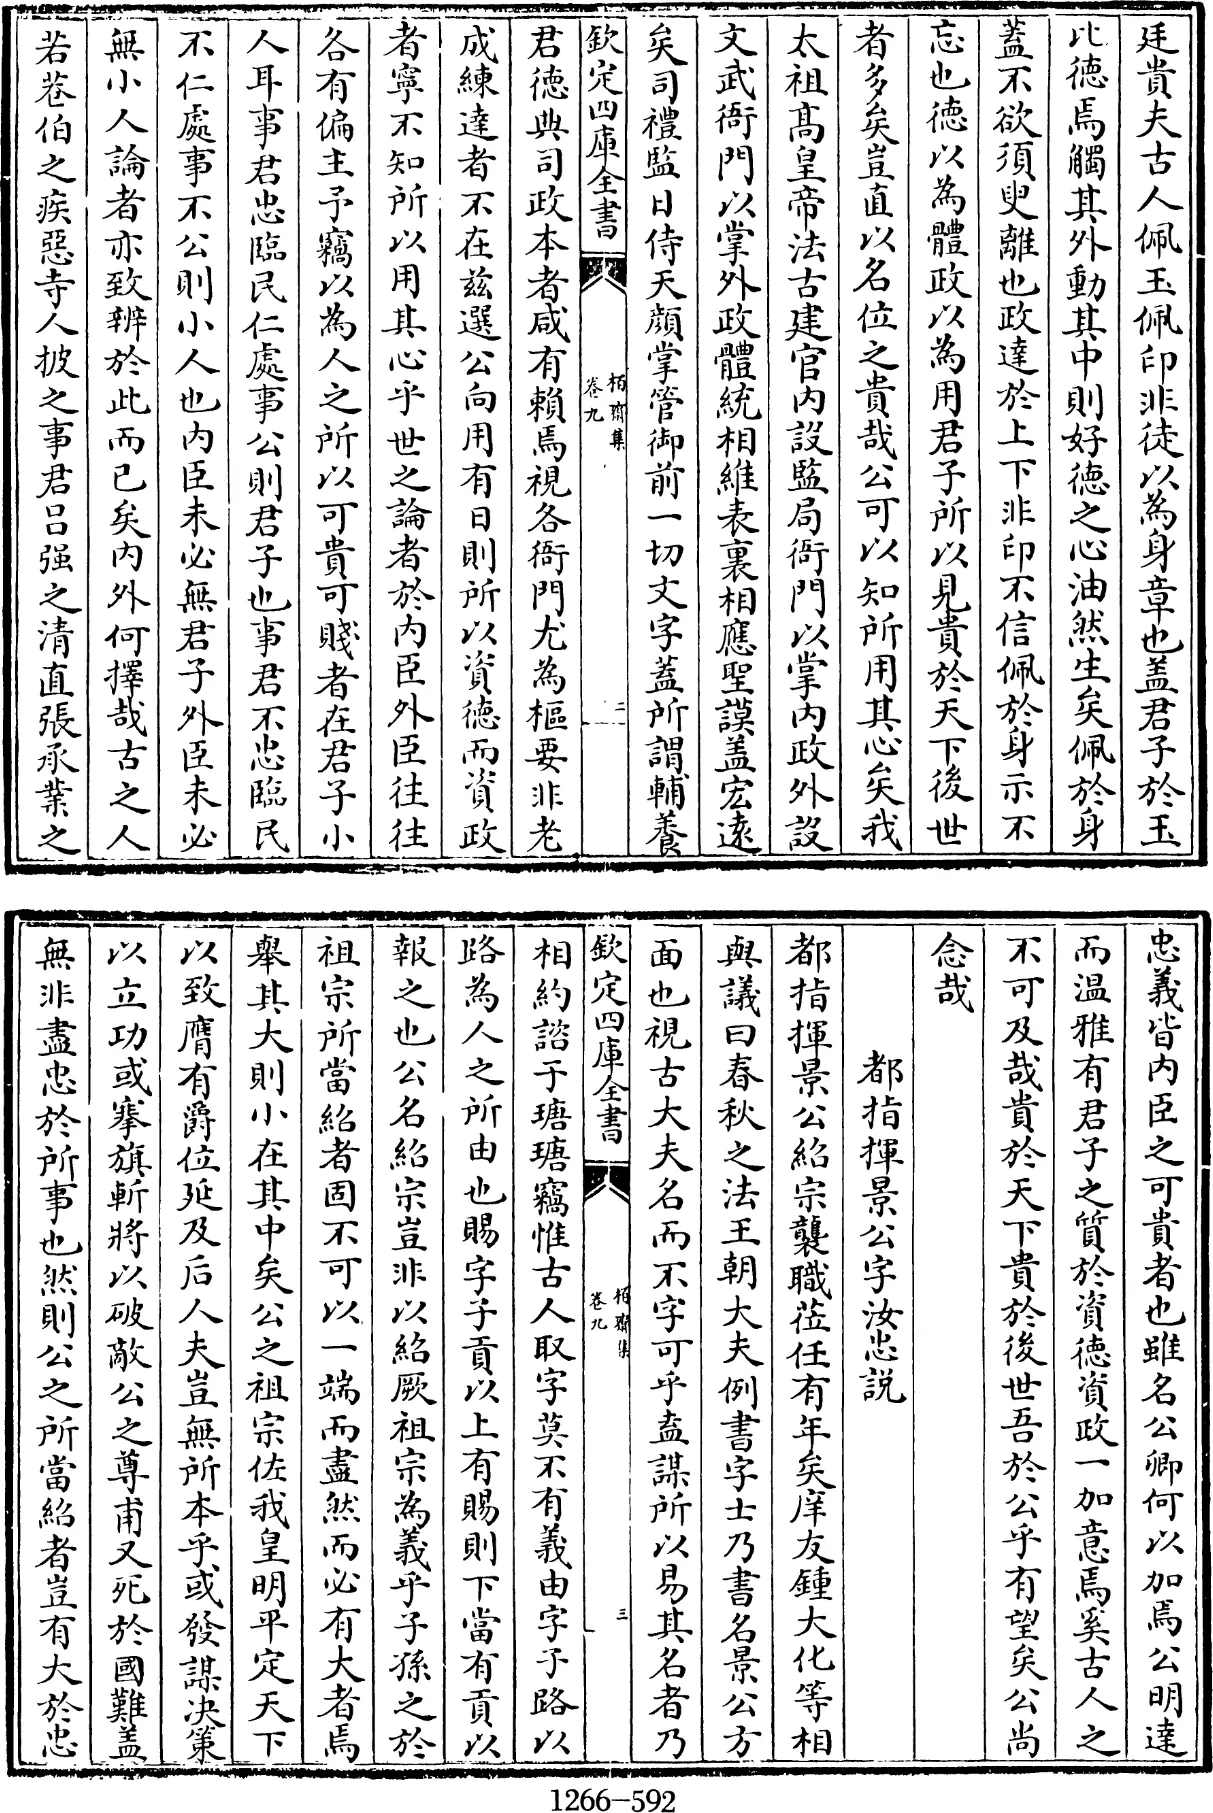 廷貴夫古人佩玉佩印非徒以為身章也盖君子於玉
比德焉觸其外動其中則好德之心油然生矣佩於身
蓋不欲須臾離也政達於上下非印不信佩於身示不
忘也德以為體政以為用君子所以見貴於天下後世
者多矣豈直以名位之貴哉公可以知所用其心矣我
太祖髙皇帝法古建官内設監局衙門以掌内政外設
文武衙門以掌外政體統相維表裏相應聖謨盖宏逺
矣司禮監日侍天顔掌管御前一切文字蓋所謂輔養
欽定四庫全書
栢齋集
卷九
二
君德典司政本者咸有賴焉視各衙門尤為樞要非老
成練達者不在兹選公向用有日則所以資德而資政
者寧不知所以用其心乎世之論者於内臣外臣往往
各有偏主予竊以為人之所以可貴可賤者在君子小
人耳事君忠臨民仁處事公則君子也事君不忠臨民
不仁處事不公則小人也内臣未必無君子外臣未必
無小人論者亦致辨於此而已矣内外何擇哉古之人
若巷伯之疾惡寺人披之事君吕强之清直張承業之
忠義皆内臣之可貴者也雖名公卿何以加焉公明達
而温雅有君子之質於資德資政一加意焉奚古人之
不可及哉貴於天下貴於後世吾於公乎有望矣公尚
念哉
都指揮景公字汝忠説
都指揮景公紹宗襲職莅任有年矣庠友鍾大化等相
與議曰春秋之法王朝大夫例書字士乃書名景公方
面也視古大夫名而不字可乎盍謀所以易其名者乃
欽定四庫全書
栢齋集
卷九
三
相約諮于瑭瑭竊惟古人取字莫不有義由字子路以
路為人之所由也賜字子貢以上有賜則下當有貢以
報之也公名紹宗豈非以紹厥祖宗為義乎子孫之於
祖宗所當紹者固不可以一端而盡然而必有大者焉
舉其大則小在其中矣公之祖宗佐我皇明平定天下
以致膺有爵位延及后人夫豈無所本乎或發謀决策
以立功或搴旗斬將以破敵公之尊甫又死於國難盖
無非盡忠於所事也然則公之所當紹者豈有大於忠
1266-592